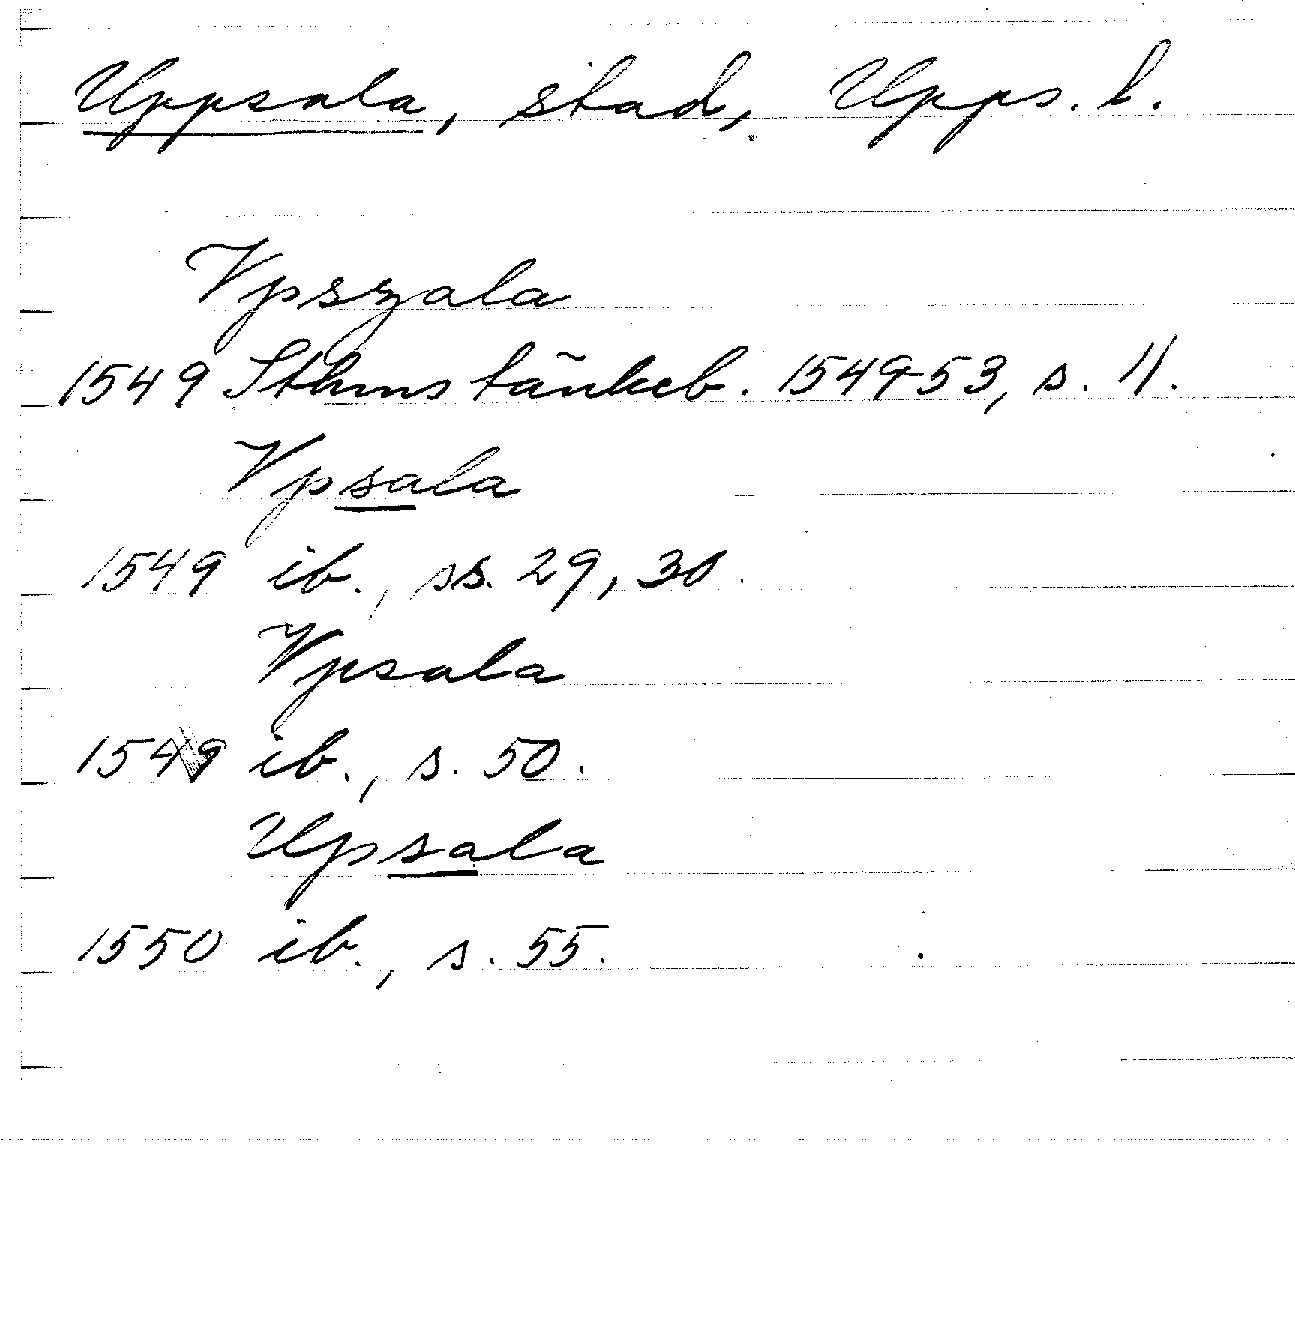 Uppsala, stad, Upps. l.
Vpszala
1549 Sthms tänkeb. 1549-53, s. 11.
Vpsala
1549 ib., ss. 29, 30.
Vpsala
1549 ib., s. 50.
Upsala
1550 ib., s. 55.